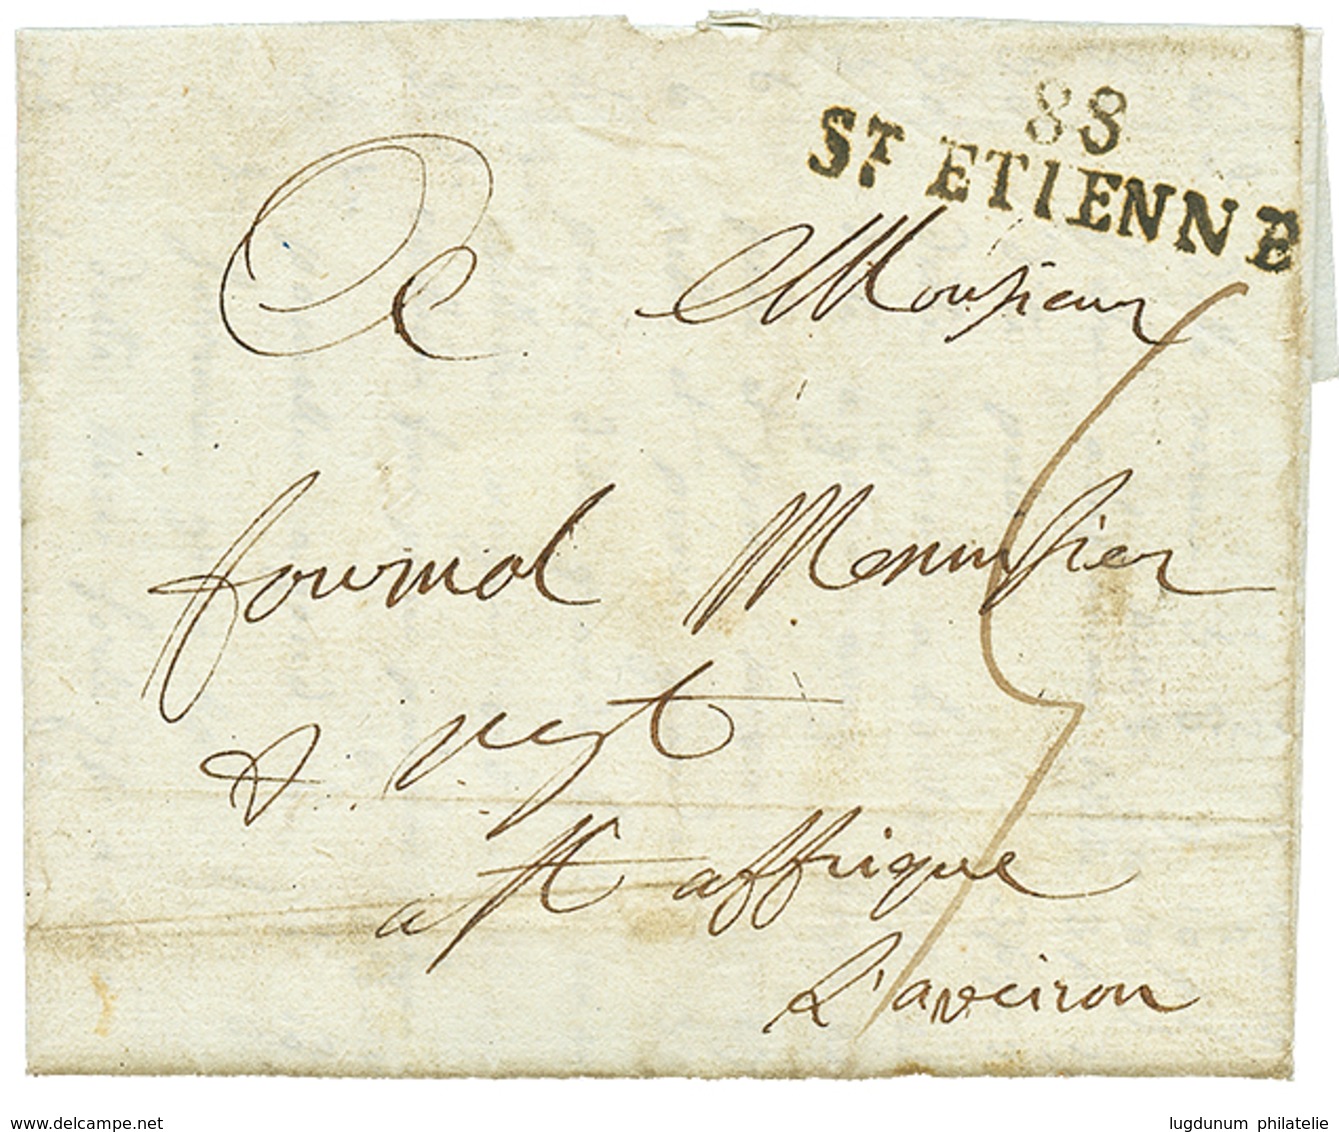 88
ST ETIENNE
A Monsieur
fournol Menusier
à st affrique
L'aveiron
www.delcampe.net
lugdunum philatelie